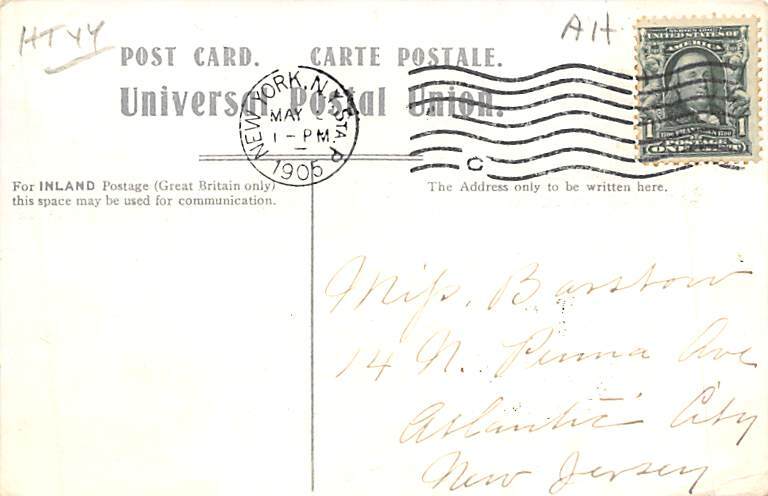 HTYY
AH
POST CARD. CARTE POSTALE.
Universal Postal Union.
NEW YORK, N.Y. STA. P
MAY
1-PM
1905
C
SERIES 1902
UNITED STATES OF
AMERICA
1 1
ONE
For INLAND Postage (Great Britain only)
this space may be used for communication.
The Address only to be written here.
Miss. Barstow
14 N. Penna Ave
Atlantic City
New Jersey